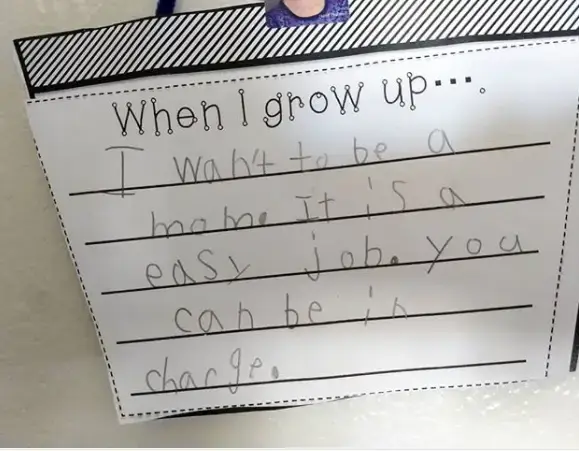 When I grow up....
I want to be a
mom. It is a
easy job. you
can be in
charge.